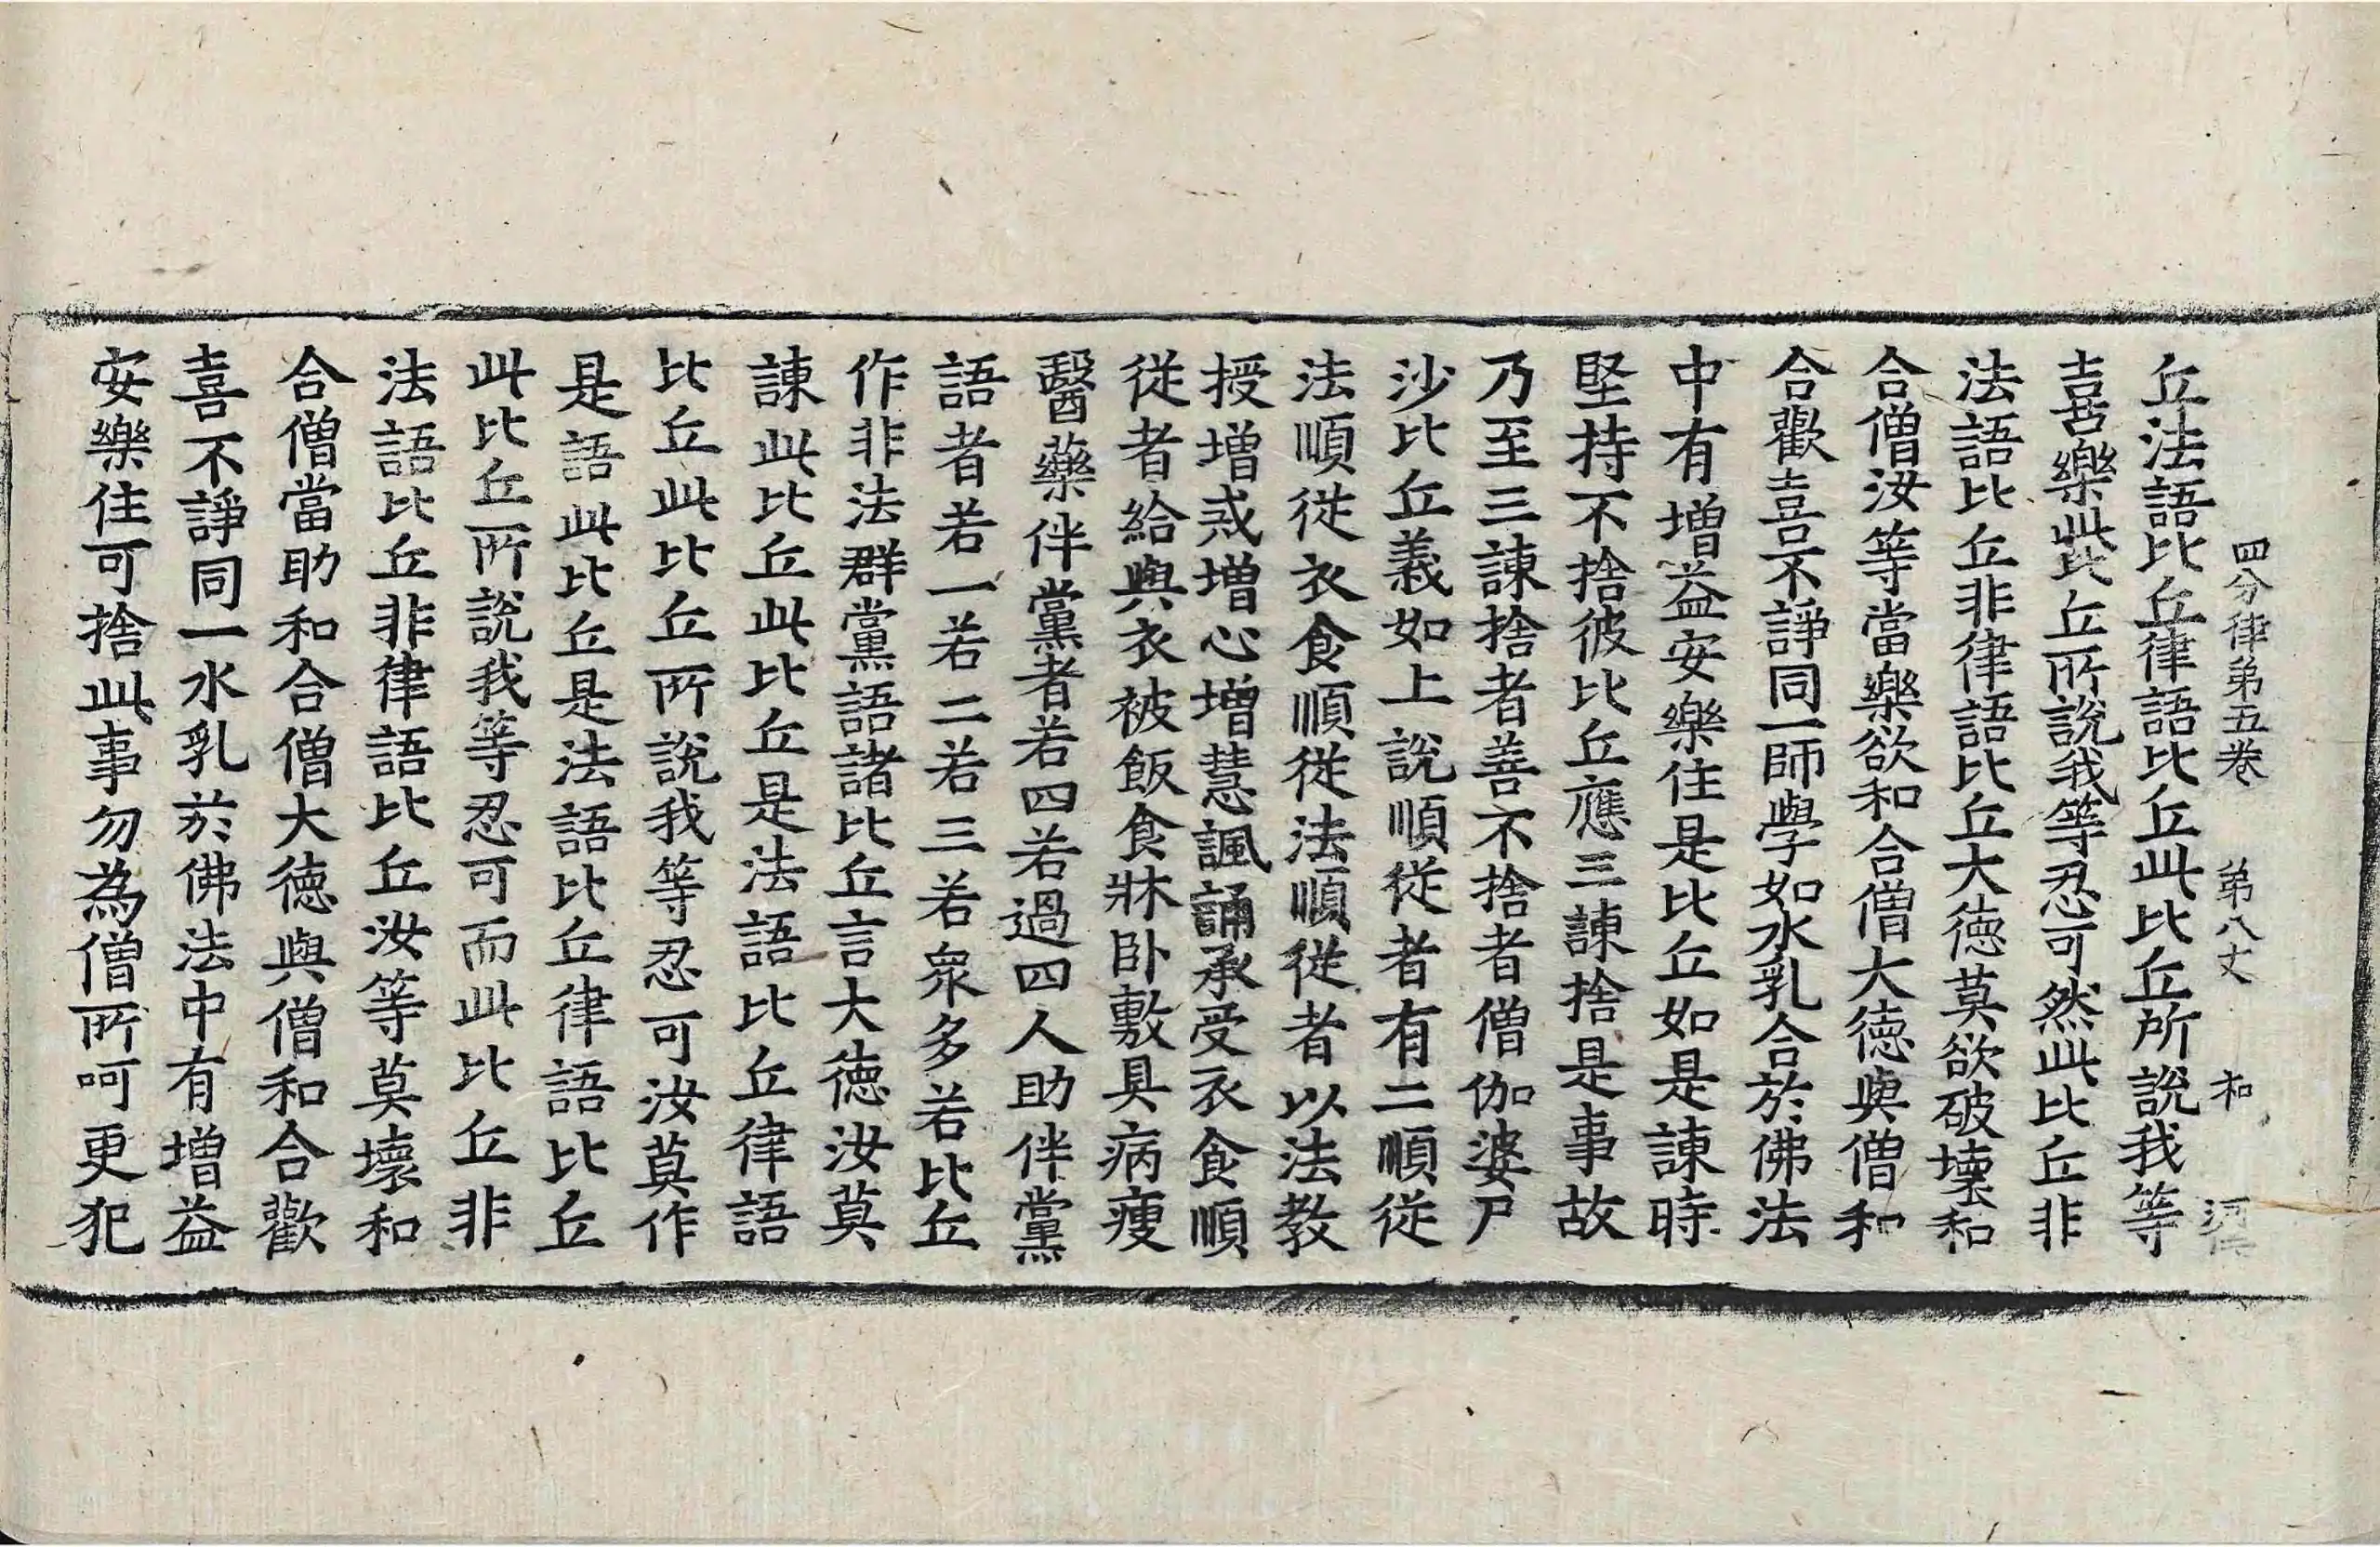 四分律第五卷 第八丈 和
丘法語比丘律語比丘此比丘所說我等
喜樂此比丘所說我等忍可然此比丘非
法語比丘非律語比丘大德莫欲破壞和
合僧汝等當樂欲和合僧大德與僧和
合歡喜不諍同一師學如水乳合於佛法
中有增益安樂住是比丘如是諫時
堅持不捨彼比丘應三諫捨是事故
乃至三諫捨者善不捨者僧伽婆尸
沙比丘義如上說順從者有二順從
法順從衣食順從法順從者以法教
授增戒增心增慧諷誦承受衣食順
從者給與衣被飯食牀臥敷具病瘦
醫藥伴黨者若四若過四人助伴黨
語者若一若二若三若眾多若比丘
作非法群黨語諸比丘言大德汝莫
諫此比丘此比丘是法語比丘律語
比丘此比丘所說我等忍可汝莫作
是語此比丘是法語比丘律語比丘
此比丘所說我等忍可而此比丘非
法語比丘非律語比丘汝等莫壞和
合僧當助和合僧大德與僧和合歡
喜不諍同一水乳於佛法中有增益
安樂住可捨此事勿為僧所呵更犯